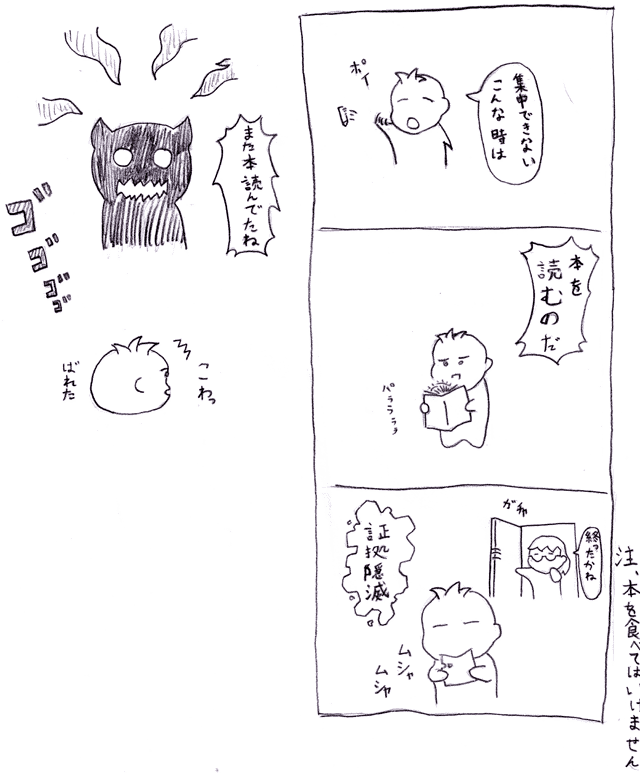 集中できない
こんな時は
ポイ
本を
読むのだ
パラララ
ガチャ
終ったかね
証拠隠滅
ムシャ
ムシャ
注、本を食べてはいけません
また本読んでたね
ゴゴゴゴ
こわっ
ばれた